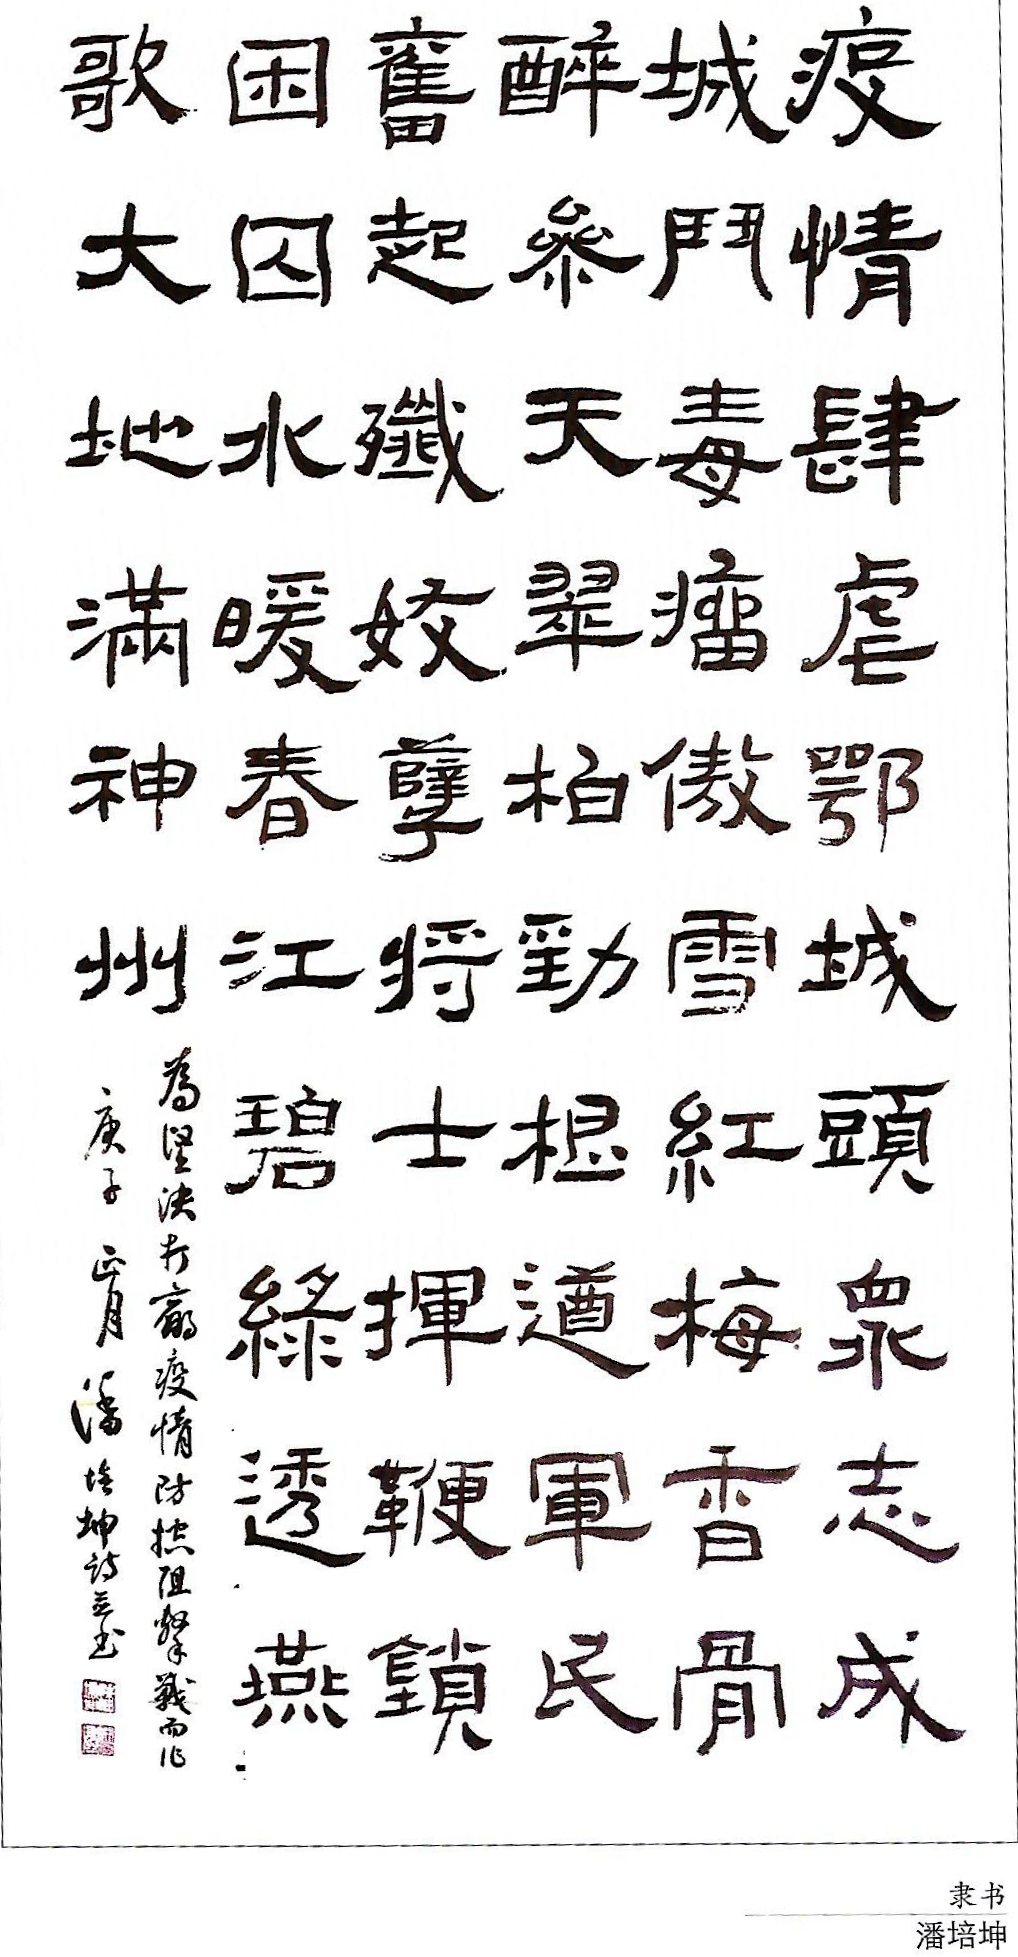 疫情肆虐鄂城頭眾志成
城鬥毒瘤傲雪紅梅香骨
醉參天翠柏勁根遒軍民
奮起殲妖孽將士揮鞭鎖
困囚水暖春江碧綠透燕
歌大地滿神州
為堅決打贏疫情防控阻擊戰而作
庚子正月潘培坤詩並书
隶书
潘培坤